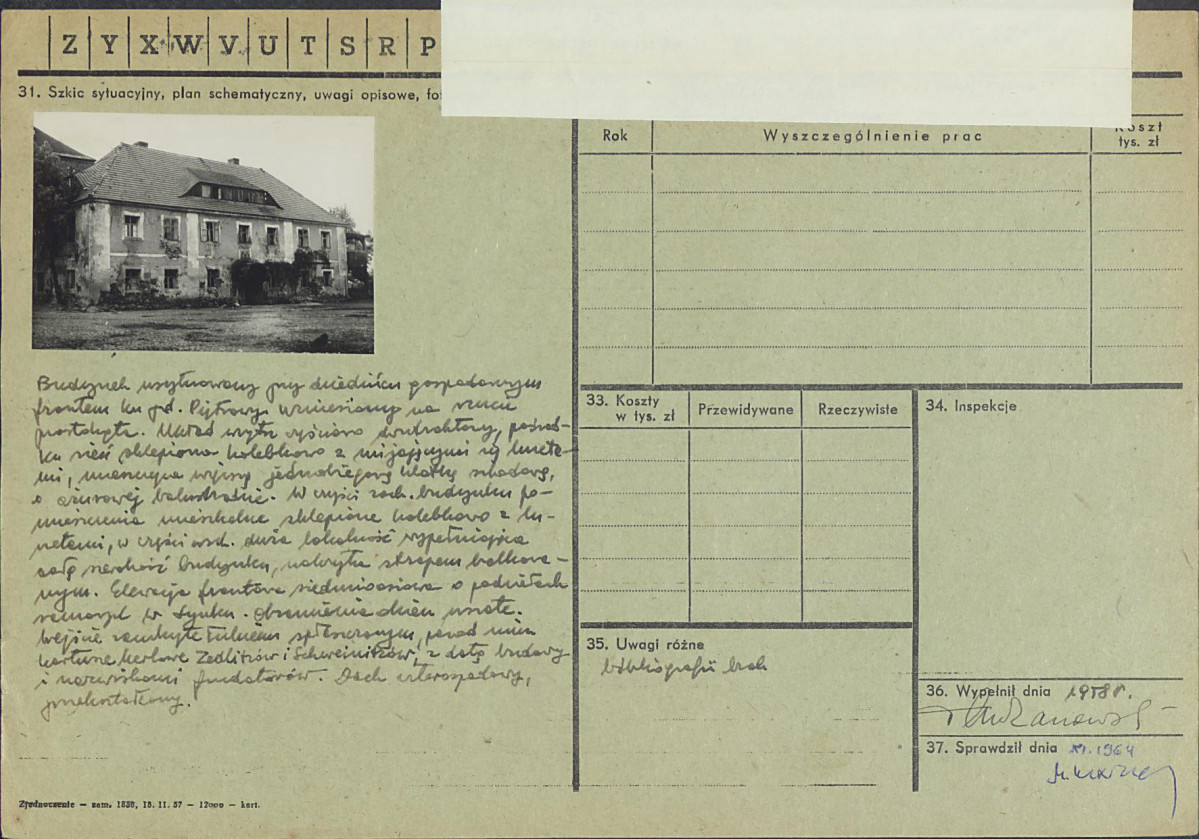 Z Y X W V U T S R P
31. Szkic sytuacyjny, plan schematyczny, uwagi opisowe, fo
Rok
Wyszczególnienie prac
Koszt
tys. zł
Budynek usytuowany przy dziedzińcu gospodarczym
frontem ku pd. Piętrowy wzniesiony na rzucie
prostokąta. Układ wnętrz dwutraktowy, pośrod-
ku sień sklepiona kolebkowo z mijającymi się luneta-
mi, mieszcząca jednobiegową klatkę schodową,
o ażurowej balustradzie. W części zach. budynku po-
mieszczenia mieszkalne sklepione kolebkowo z lu-
netami, w części wsch. duża lokalność wypełniająca
całą szerokość budynku, nakryta stropem belkowa-
nym. Elewacja frontowa siedmioosiowa o podziałach
ramowych w tynku. Obramienia okien uszate.
Wejście zamknięte łukiem spłaszczonym, ponad nim
kartusze herbowe Zedlitzów i Schweinitzów, z datą budowy
i nazwiskami fundatorów. Dach czterospadowy,
przekształcony.
33. Koszty
w tys. zł
Przewidywane
Rzeczywiste
34. Inspekcje
35. Uwagi różne
bibliografii brak
36. Wypełnił dnia 1958 r.
37. Sprawdził dnia XI. 1964
Zjednoczenie — zam. 1838, 15. 11. 57 — 12000 — kart.